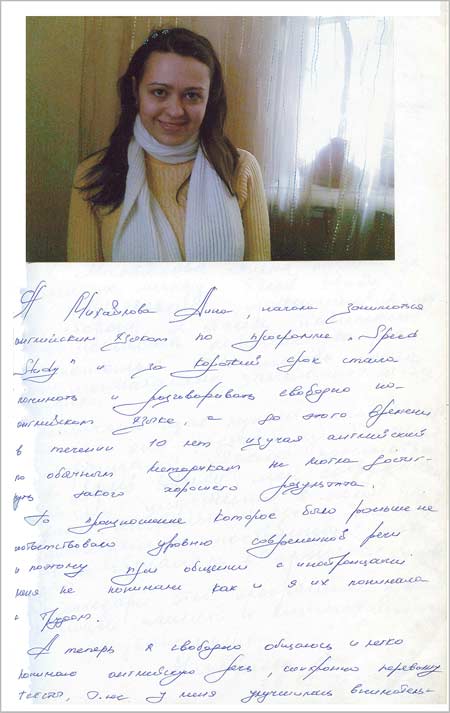 Я Михайлова Анна, начала заниматься
английским языком по программе „Speed
Study" и за короткий срок стала
понимать и разговаривать свободно на
английском языке, а до этого времени
в течении 10 лет изучая английский
по обычным методикам не могла достиг-
нуть такого хорошего результата.
То произношение которое было раньше не
соответствовало уровню современной речи
и поэтому при общении с иностранцами
меня не понимали как и я их понимала
с трудом.
А теперь я свободно общаюсь и легко
понимаю английскую речь, синхронно перевожу
тексты, у меня улучшилась вниматель-